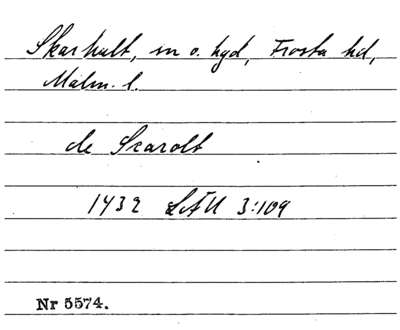 Skarhult, sn o. hgd, Frosta hd,
Malm. l.
de Scarolt
1432 LÄU 3:109
Nr 5574.